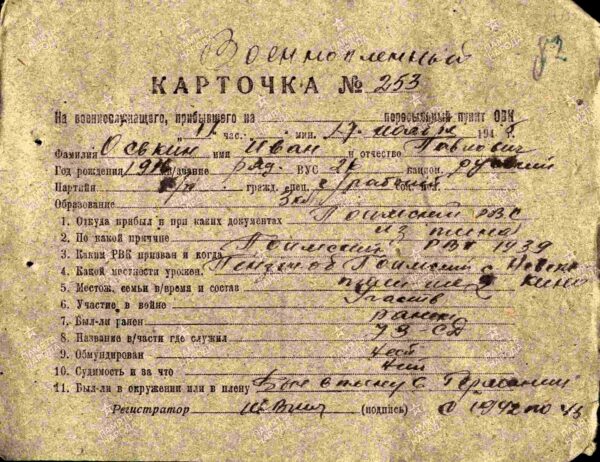 Военнопленный
82
КАРТОЧКА № 253
На военнослужащего, прибывшего на пересыльный пункт ОВК
11 час. мин. 17 194
Фамилия Оськин имя Иван и отчество Павлович
Год рождения звание ряд ВУС национ. русский
Партийн б/п гражд. спец.
Образование 3 кл
1. Откуда прибыл и при каких документах Поимский РВК
2. По какой причине из плена
3. Каким РВК призван и когда Поимский РВК 1939
4. Какой местности урожен. Поимский с
5. Местож. семьи в/время и состав
6. Участие в войне Участв
7. Был-ли ранен ранен
8. Название в/части где служил 73-СД
9. Обмундирован
10. Судимость и за что
11. Был-ли в окружении или в плену Был в плену с Германии
Регистратор (подпись) с 1942 по 43